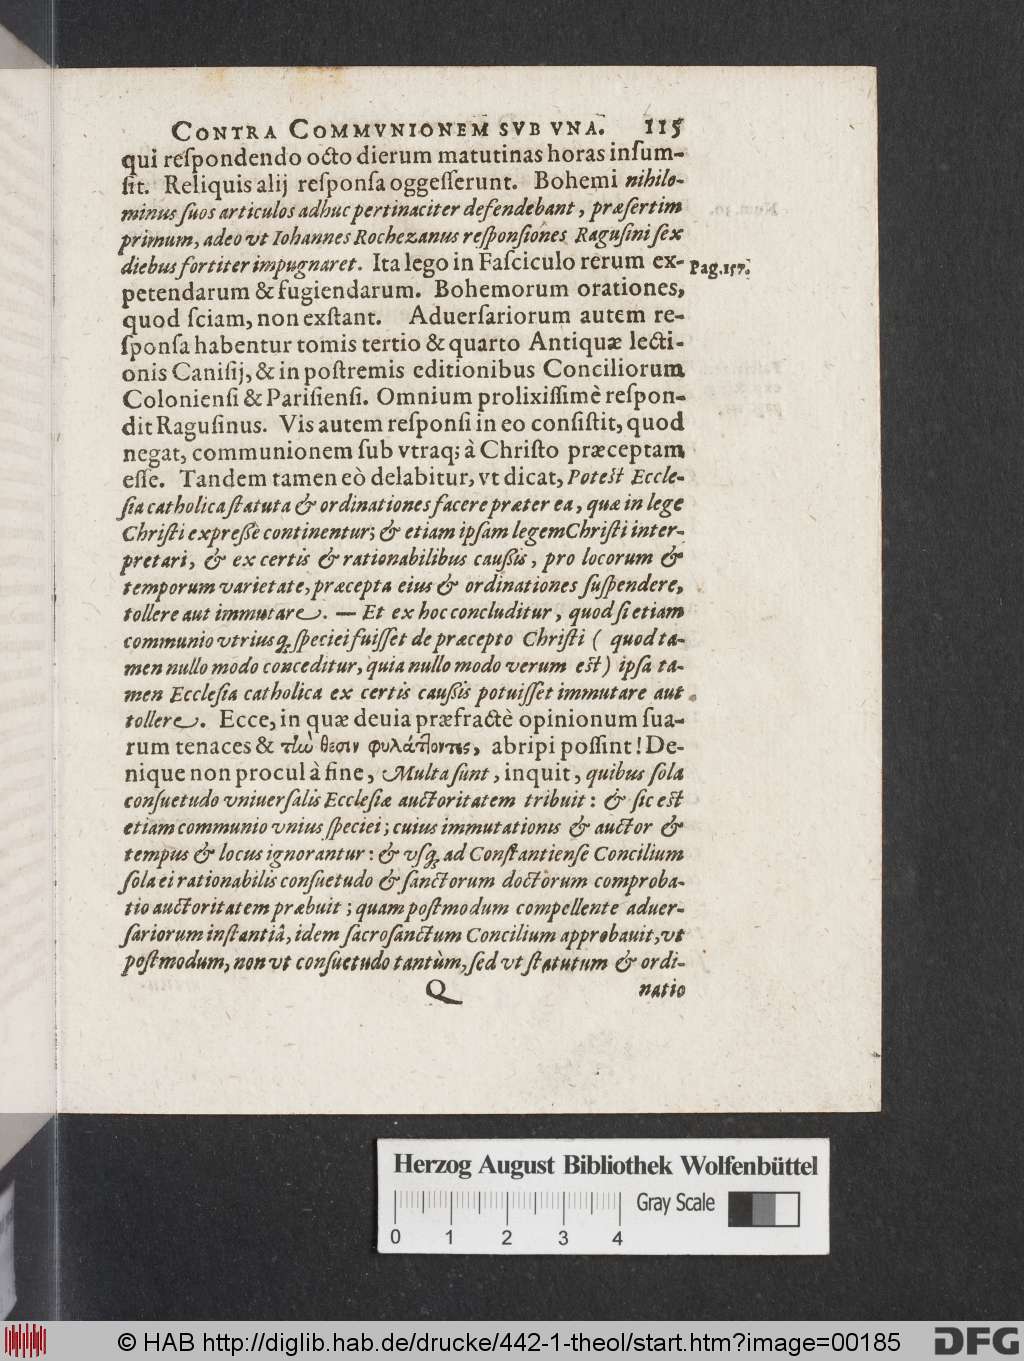 CONTRA COMMVNIONEM SVB VNA. 115
qui reſpondendo octo dierum matutinas horas inſum-
ſit. Reliquis alij reſponſa oggeſſerunt. Bohemi nihilo-
minus ſuos articulos adhuc pertinaciter defendebant, præſertim
primum, adeo vt Iohannes Rochezanus reſponſiones Raguſini ſex
diebus fortiter impugnaret. Ita lego in Faſciculo rerum ex- Pag. 157.
petendarum & fugiendarum. Bohemorum orationes,
quod ſciam, non exſtant. Aduerſariorum autem re-
ſponſa habentur tomis tertio & quarto Antiquæ lecti-
onis Caniſij, & in poſtremis editionibus Conciliorum
Colonienſi & Pariſienſi. Omnium prolixiſſimè reſpon-
dit Raguſinus. Vis autem reſponſi in eo conſiſtit, quod
negat, communionem ſub vtraq; à Chriſto præceptam
eſſe. Tandem tamen eò delabitur, vt dicat, Poteſt Eccle-
ſia catholica ſtatuta & ordinationes facere præter ea, quæ in lege
Chriſti expreſſè continentur; & etiam ipſam legem Chriſti inter-
pretari, & ex certis & rationabilibus cauſſis, pro locorum &
temporum varietate, præcepta eius & ordinationes ſuſpendere,
tollere aut immutare. — Et ex hoc concluditur, quod ſi etiam
communio vtriusq; ſpeciei fuiſſet de præcepto Chriſti ( quod ta-
men nullo modo conceditur, quia nullo modo verum eſt) ipſa ta-
men Eccleſia catholica ex certis cauſſis potuiſſet immutare aut
tollere. Ecce, in quæ deuia præfractè opinionum ſua-
rum tenaces & τὼ θεσιν φυλάτλοντες, abripi poſſint! De-
nique non procul à fine, Multa ſunt, inquit, quibus ſola
conſuetudo vniuerſalis Eccleſiæ auctoritatem tribuit: & ſic eſt
etiam communio vnius ſpeciei; cuius immutationis & auctor &
tempus & locus ignorantur: & vſq; ad Conſtantienſe Concilium
ſola ei rationabilis conſuetudo & ſanctorum doctorum comproba-
tio auctoritatem præbuit; quam poſtmodum compellente aduer-
ſariorum inſtantiâ, idem ſacroſanctum Concilium approbauit, vt
poſtmodum, non vt conſuetudo tantùm, ſed vt ſtatutum & ordi-
Q natio
Herzog August Bibliothek Wolfenbüttel
Gray Scale
0 1 2 3 4
© HAB http://diglib.hab.de/drucke/442-1-theol/start.htm?image=00185 DFG